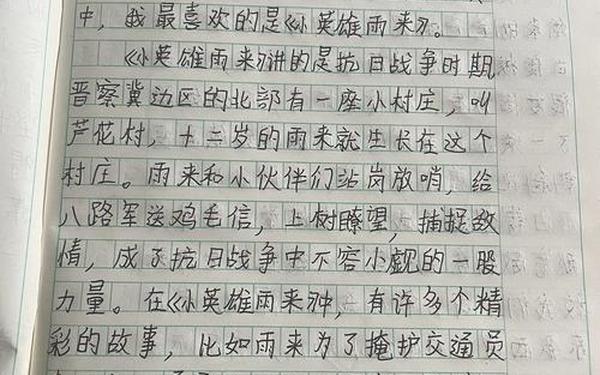 中，我最喜欢的是《小英雄雨来》。
《小英雄雨来》讲的是抗日战争时期，
晋察冀边区的北部有一座小村庄，叫
芦花村，十二岁的雨来就生长在这个
村庄。雨来和小伙伴们站岗放哨，给
八路军送鸡毛信，上树瞭望，捕捉敌
情，成了抗日战争中不容小觑的一股
力量。在《小英雄雨来》中，有许多个精
彩的故事，比如雨来为了掩护交通员